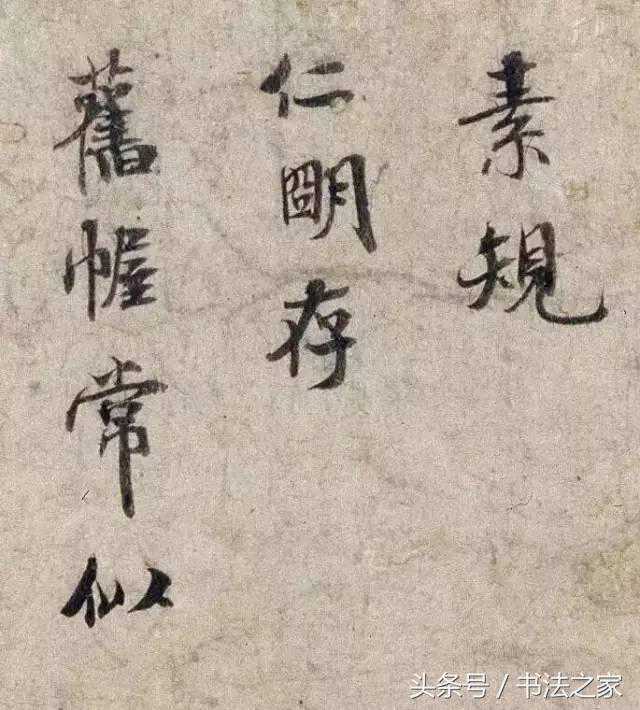 素規
仁明存
舊幄常似
头条号／书法之家